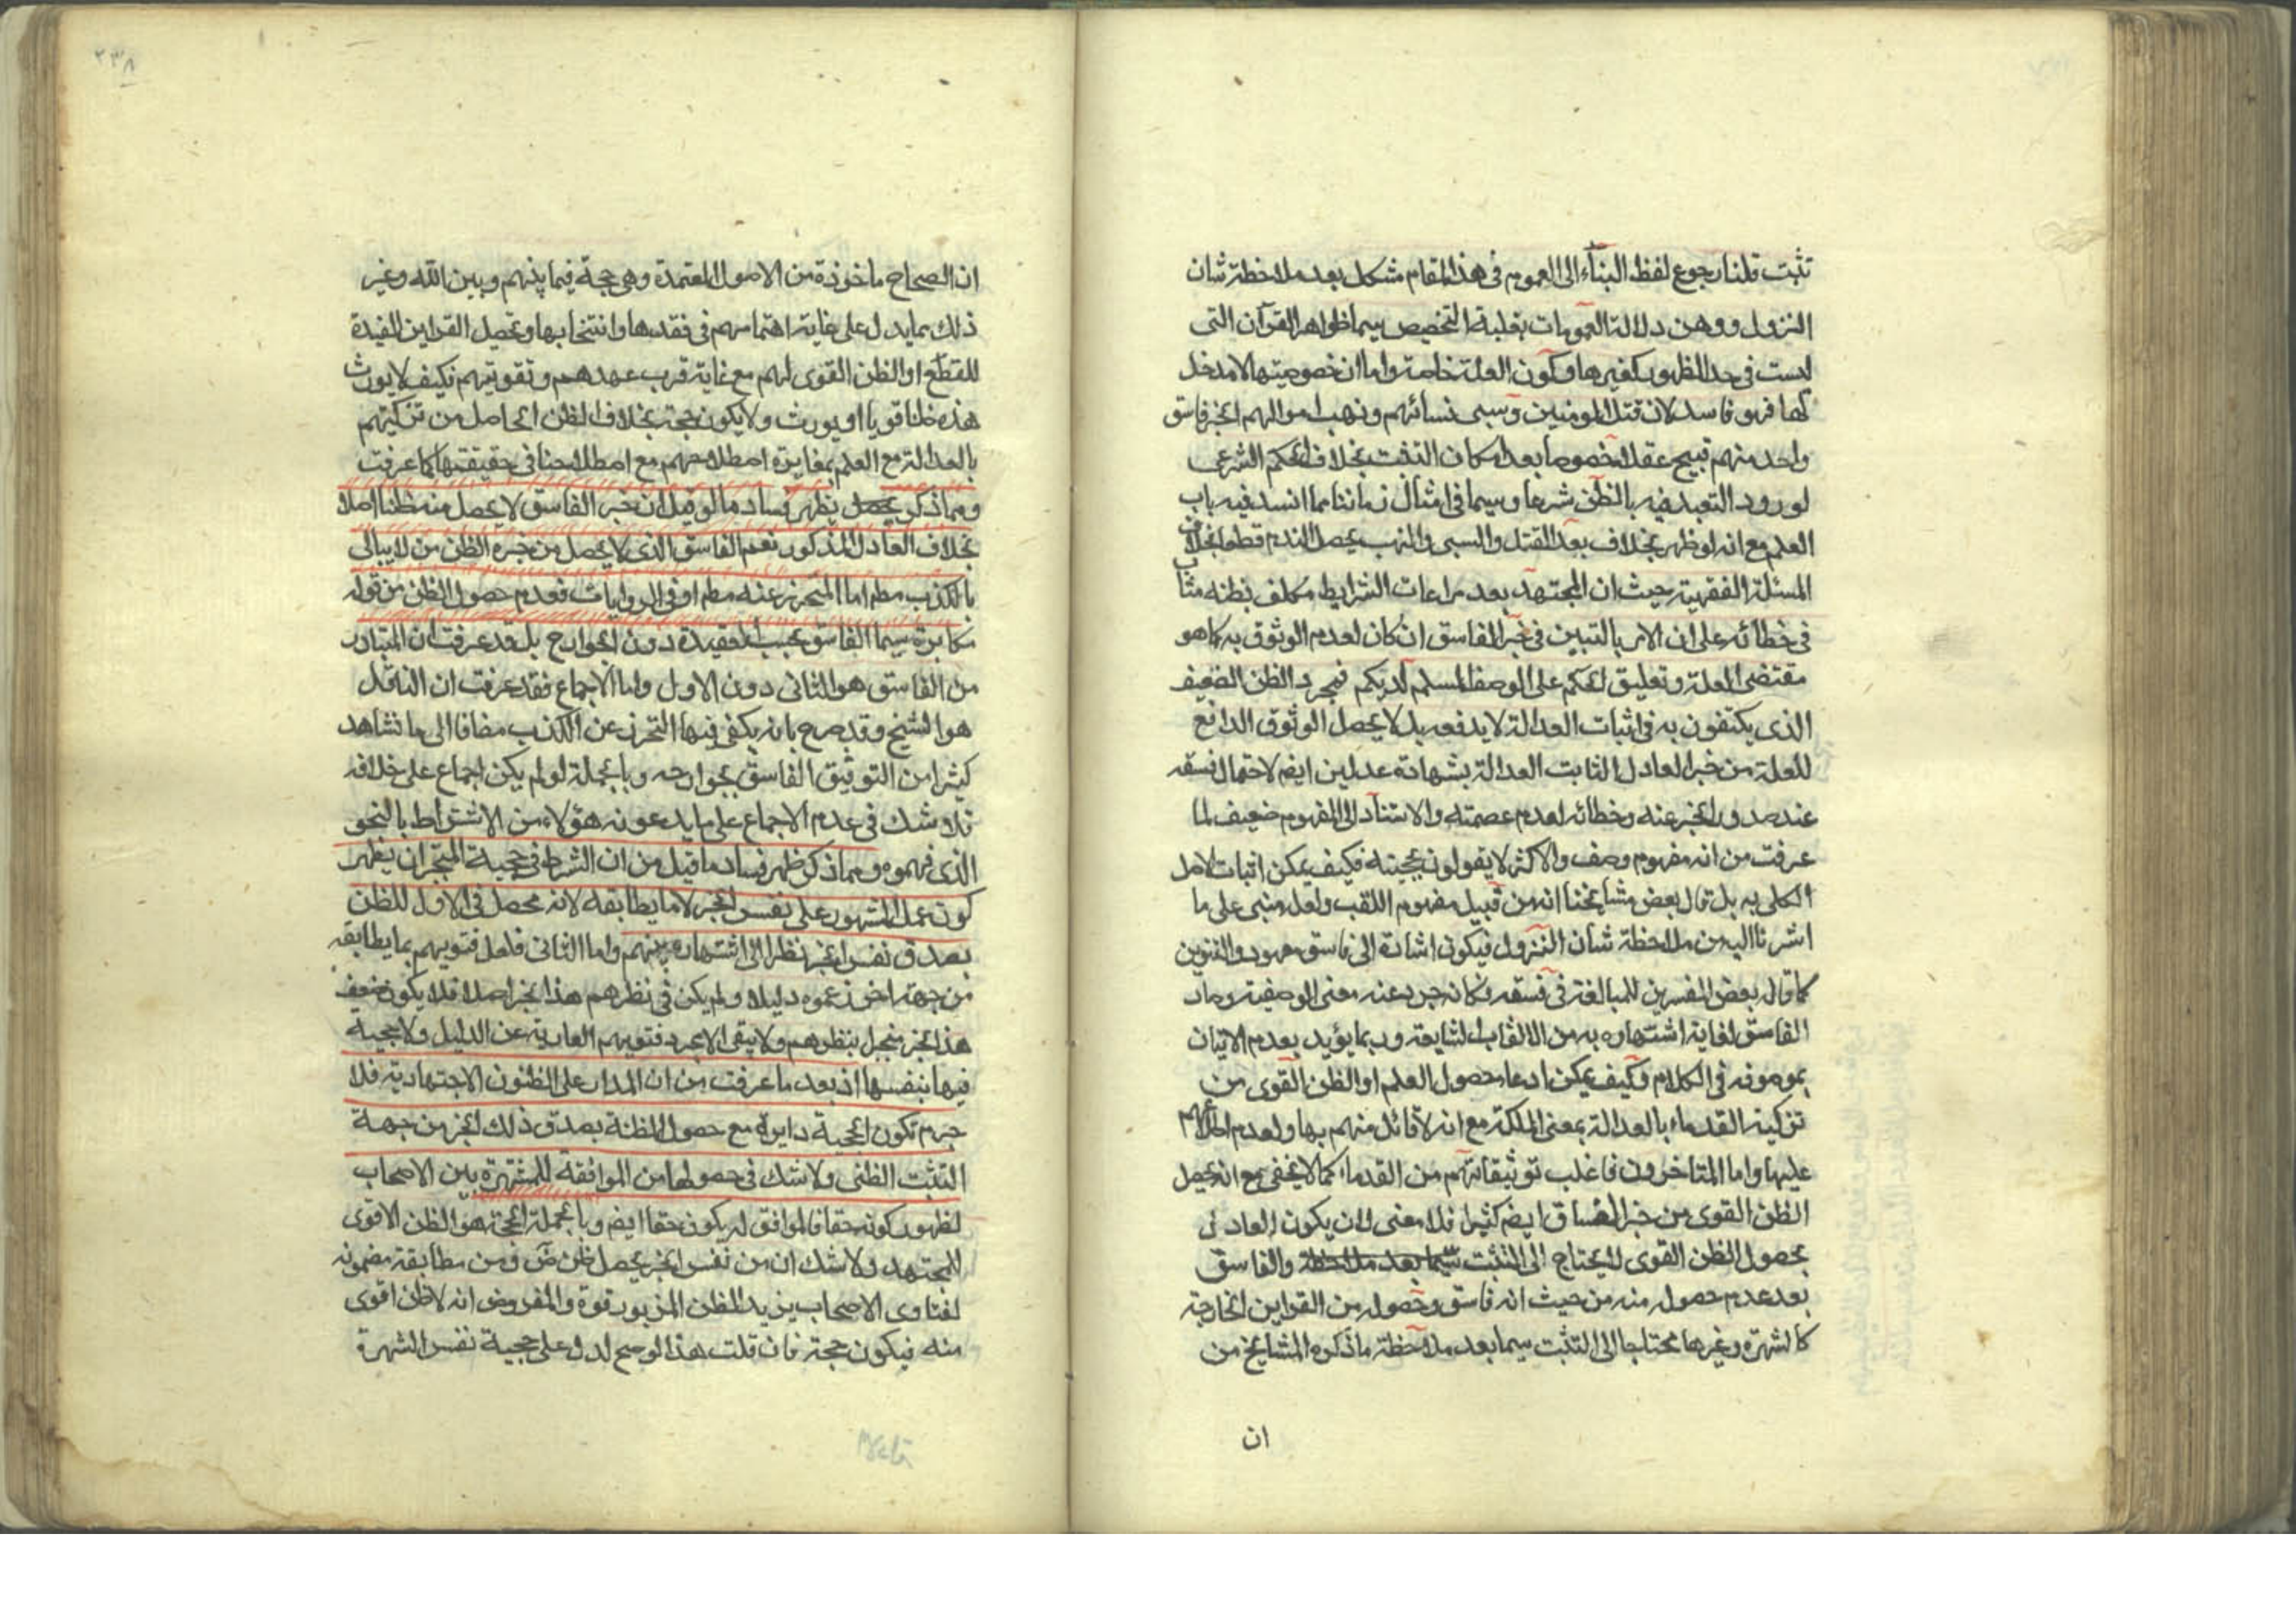 تثبت قلنا رجوع لفظ البناء الى العموم فى هذا المقام مشكل بعد ملاحظة شان
النزول ووهن دلالة العمومات بغلبة التخصيص سيما ظواهر القرآن التى
ليست فى حد الظهور كغيرها وكون العلة خاصة واما ان خصوصيتها لا مدخل
لها فهو فاسد لان قتل المومنين وسبى نسائهم ونهب اموالهم بخبر فاسق
واحد منهم قبيح عقلا خصوصا بعد امكان التثبت بخلاف الحكم الشرعى
لورود التعبد فيه بالظن شرعا وسيما فى امثال زماننا مما انسد فيه باب
العلم مع انه لو ظهر بخلاف بعد القتل والسبى والنهب يحصل الندم قطعا بخلاف
المسئلة الفقهية حيث ان المجتهد بعد مراعات الشرايط مكلف بظنه مثاب
فى خطائه على ان الامر بالتبين فى خبر الفاسق ان كان لعدم الوثوق به كما هو
مقتضى العلة وتعليق الحكم على الوصف المسلم لديكم فمجرد الظن الضعيف
الذى يكتفون به فى اثبات العدالة لا يدفعه بل لا يحصل الوثوق الدافع
للعلة من خبر العادل الثابت العدالة بشهادة عدلين ايضم لاحتمال فسقه
عند صدور الخبر عنه وخطائه لعدم عصمته والاستناد الى المفهوم ضعيف لما
عرفت من انه مفهوم وصف والاكثر لا يقولون بحجيته فكيف يمكن اثبات الاصل
الكلى به بل قال بعض مشايخنا انه من قبيل مفهوم اللقب ولعله مبنى على ما
اشرنا اليه من ملاحظة شان النزول فيكون اشارة الى فاسق معهود والتنوين
كما قال بعض المفسرين للمبالغة فى فسقه فكانه جرد عنه معنى الوصفية وصار
الفاسق لغاية اشتهاره به من الالقاب الشايعة وربما يؤيد بعدم الاتيان
بموصوفه فى الكلام وكيف يمكن ادعاء حصول العلم او الظن القوى من
تزكية القدماء بالعدالة بمعنى الملكة مع انه لا قائل منهم بها ولعدم اطلاعهم
عليها واما المتاخرون فاغلب توثيقاتهم من القدماء كما لا يخفى مع انه يحصل
الظن القوى من خبر الفساق ايضم كثيرا فلا معنى لان يكون العادل
بحصول الظن القوى لا يحتاج الى التثبت سيما بعد ملاحظة والفاسق
بعد عدم حصوله منه من حيث انه فاسق وحصوله من القراين الخارجة
كالشهرة وغيرها محتاجا الى التثبت سيما بعد ملاحظة ما ذكره المشايخ من
ان
٢٣٨
ان الصحاح ماخوذة من الاصول المعتمدة وهى حجة فيما بينهم وبين الله وغير
ذلك بما يدل على غاية اهتمامهم فى نقدها وانتخابها وتحصيل القراين المفيدة
للقطع او الظن القوى لهم مع غاية قرب عهدهم وتقويتهم فكيف لا يورث
هذه ظنا قويا او يورث ولا يكون حجة بخلاف الظن الحاصل من تزكيتهم
بالعدالة مع العلم بمغايرة اصطلاحهم مع اصطلاحنا فى حقيقتها كما عرفت
ومما ذكر يحصل يظهر فساد ما لو قيل ان خبر الفاسق لا يحصل منه ظنا اصلا
بخلاف العادل المذكور نعم الفاسق الذى لا يحصل من خبره الظن من لا يبالى
بالكذب مطم اما المتحرز عنه مطم او فى الروايات فعدم حصول الظن من قوله
مكابرة سيما الفاسق بحسب العقيدة دون الجوارح بل قد عرفت ان المتبادر
من الفاسق هو الثانى دون الاول واما الاجماع فقد عرفت ان الناقل
هو الشيخ وقد صرح بانه يكفى فيها التحرز عن الكذب مضافا الى ما نشاهد
كثيرا من التوثيق الفاسق بجوارحه وبالجملة لو لم يكن اجماع على خلافه
فلا شك فى عدم الاجماع على ما يدعونه هؤلاء من الاشتراط بالنحو
الذى فهموه ومما ذكر ظهر فساد ما قيل من ان الشرط فى حجية المنجبر ان يظهر
كون عمل المشهور على نفس الخبر لا ما يطابقه لانه محصل فى الاول للظن
بصدق نفس الخبر نظرا الى اشتهاره بينهم واما الثانى فلعل فتويهم بما يطابقه
من جهة اخرى زعموه دليلا ولم يكن فى نظرهم هذا الخبر اصلا فلا يكون ضعف
هذا الخبر منجبل بنظرهم ولا يبقى الا مجرد فتويهم العارية عن الدليل ولا حجية
فيها بنفسها اذ بعد ما عرفت من ان المدار على الظنون الاجتهادية فلا
جرم تكون الحجية دايرة مع حصول المظنة بصدق ذلك الخبر من جهة
التثبت الظنى ولا شك فى حصولها من الموافقة للمشتهرة بين الاصحاب
لظهور كونه حقا فالموافق له يكون حقا ايضم وبالجملة الحجة هو الظن الاقوى
للمجتهد ولا شك ان من نفس الخبر يحصل ظن ضَ ومن مطابقة مضمونه
لفتاوى الاصحاب يزيد الظن المزبور قوة والمفروض انه لا ظن اقوى
منه فيكون حجة فان قلت هذا لو صح لدل على حجية نفس الشهرة